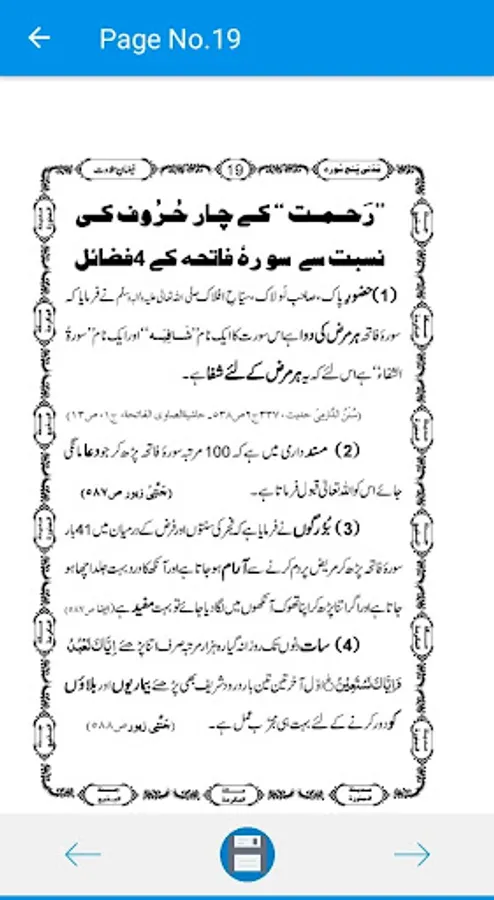 Page No.19
مَدَنی پنج سُورہ
19
فیضانِ تلاوت
”رَحمت“ کے چار حُرُوف کی
نسبت سے سورۂ فاتحہ کے 4فضائل
(1) حضورِ پاک، صاحبِ لَولاک، سیّاحِ افلاک صلی اللہ تعالیٰ علیہ والہٖ وسلم نے فرمایا کہ
سورۂ فاتحہ ہر مرض کی دوا ہے اس سورت کا ایک نام ”شافِیَہ“ اور ایک نام ”سورۃُ
الشفاء“ ہے اس لئے کہ یہ ہر مرض کے لئے شفا ہے۔
(سُنَنُ الدَّارِمِی حدیث، ۳۳۷۰ج۲ص۵۳۸۔ حاشیۃالصاوی الفاتحۃ، ج۱، ص۱۳)
(2) مسند داری میں ہے کہ 100 مرتبہ سورۂ فاتحہ پڑھ کر جو دعا مانگی
جائے اس کو اللہ تعالیٰ قبول فرماتا ہے۔ (جنّتی زیور ص۵۸۷)
(3) بُزُرگوں نے فرمایا ہے کہ فجر کی سنتوں اور فرض کے درمیان میں 41 بار
سورۂ فاتحہ پڑھ کر مریض پر دم کرنے سے آرام ہو جاتا ہے اور آنکھ کا درد بہت جلد اچھا ہو
جاتا ہے اور اگر اتنا پڑھ کر اپنا تھوک آنکھوں میں لگا دیا جائے تو بہت مفید ہے (ایضاً ص۵۸۷)
(4) سات دِنوں تک روزانہ گیارہ ہزار مرتبہ صرف اتنا پڑھئے اِیَّاکَ نَعْبُدُ
وَاِیَّاکَ نَسْتَعِیْنُ اوّل آخر تین تین بار درود شریف بھی پڑھئے بیماریوں اور بلاؤں
کو دور کرنے کے لئے بہت ہی مجرّب عمل ہے۔ (جنّتی زیور ص۵۸۸)